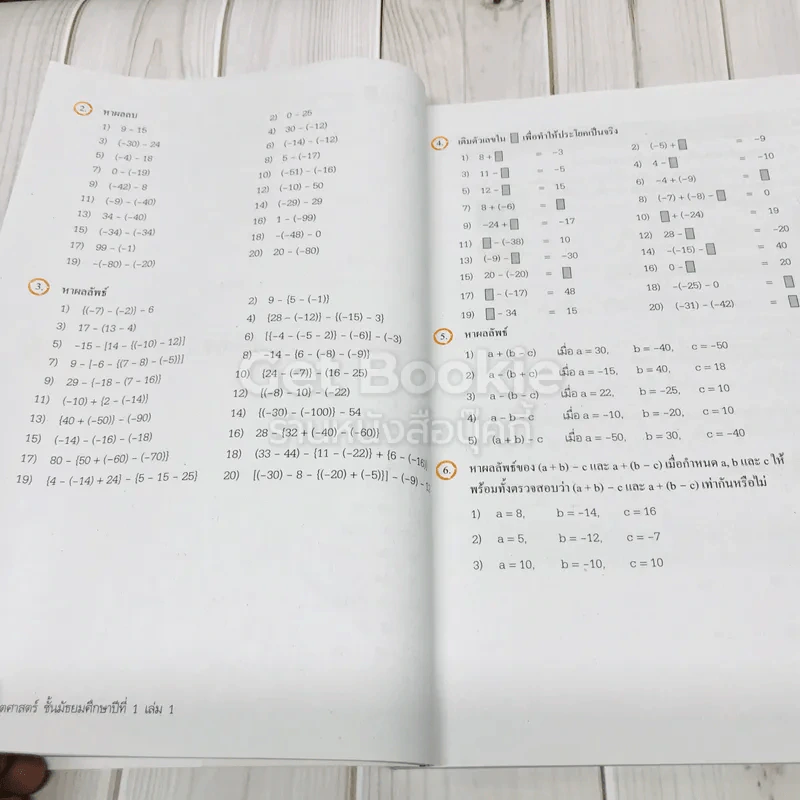 2. หาผลลบ
1) 9 – 15 2) 0 – 25
3) (–30) – 24 4) 30 – (–12)
5) (–4) – 18 6) (–14) – (–12)
7) 0 – (–19) 8) 5 – (–17)
9) (–42) – 8 10) (–51) – (–16)
11) (–9) – (–40) 12) (–10) – 50
13) 34 – (–40) 14) (–29) – 29
15) (–34) – (–34) 16) 1 – (–99)
17) 99 – (–1) 18) –(–48) – 0
19) –(–80) – (–20) 20) 20 – (–80)
3. หาผลลัพธ์
1) {(–7) – (–2)} – 6 2) 9 – {5 – (–1)}
3) 17 – (13 – 4) 4) {28 – (–12)} – {(–15) – 3}
5) –15 – [14 – {(–10) – 12}] 6) [{–4 – (–5 – 2)} – (–6)] – (–3)
7) 9 – [–6 – {(7 – 8) – (–5)}] 8) –14 – {6 – (–8) – (–9)}
9) 29 – (–18 – (7 – 16)} 10) {24 – (–7)} – (16 – 25)
11) (–10) + {2 – (–14)} 12) {(–8) – 10} – (–22)
13) {40 + (–50)} – (–90) 14) {(–30) – (–100)} – 54
15) (–14) – (–16) – (–18) 16) 28 – {32 + (–40) – (–60)}
17) 80 – {50 + (–60) – (–70)} 18) (33 – 44) – {11 – (–22)} + {6 – (–16)}
19) {4 – (–14) + 24} – {5 – 15 – 25} 20) [(–30) – 8 – {(–20) + (–5)}] – (–9) –
ตศาสตร์ ชั้นมัธยมศึกษาปีที่ 1 เล่ม 1
4. เติมตัวเลขใน □ เพื่อทำให้ประโยคเป็นจริง
1) 8 + □ = –3 2) (–5) + □ = –9
3) 11 – □ = –5 4) 4 – □ = –10
5) 12 – □ = 15 6) –4 + (–9) = □
7) 8 + (–6) = □ 8) (–7) + (–8) – □ = 0
9) –24 + □ = –17 10) □ + (–24) = 19
11) □ – (–38) = 10 12) 28 – □ = –20
13) (–9) – □ = –30 14) –(–15) – □ = 40
15) 20 – (–20) = □ 16) 0 – □ = 20
17) □ – (–17) = 48 18) –(–25) – 0 = □
19) □ – 34 = 15 20) (–31) – (–42) = □
5. หาผลลัพธ์
1) a + (b – c) เมื่อ a = 30, b = –40, c = –50
2) a – (b – c) เมื่อ a = –15, b = 40, c = 18
3) a – (b – c) เมื่อ a = 22, b = –25, c = 10
4) a – b – c เมื่อ a = –10, b = –20, c = 10
5) (a + b) – c เมื่อ a = –50, b = 30, c = –40
6. หาผลลัพธ์ของ (a + b) – c และ a + (b – c) เมื่อกำหนด a, b และ c ให้
พร้อมทั้งตรวจสอบว่า (a + b) – c และ a + (b – c) เท่ากันหรือไม่
1) a = 8, b = –14, c = 16
2) a = 5, b = –12, c = –7
3) a = 10, b = –10, c = 10
Get Bookie
ร้านหนังสือบุ๊คกี้